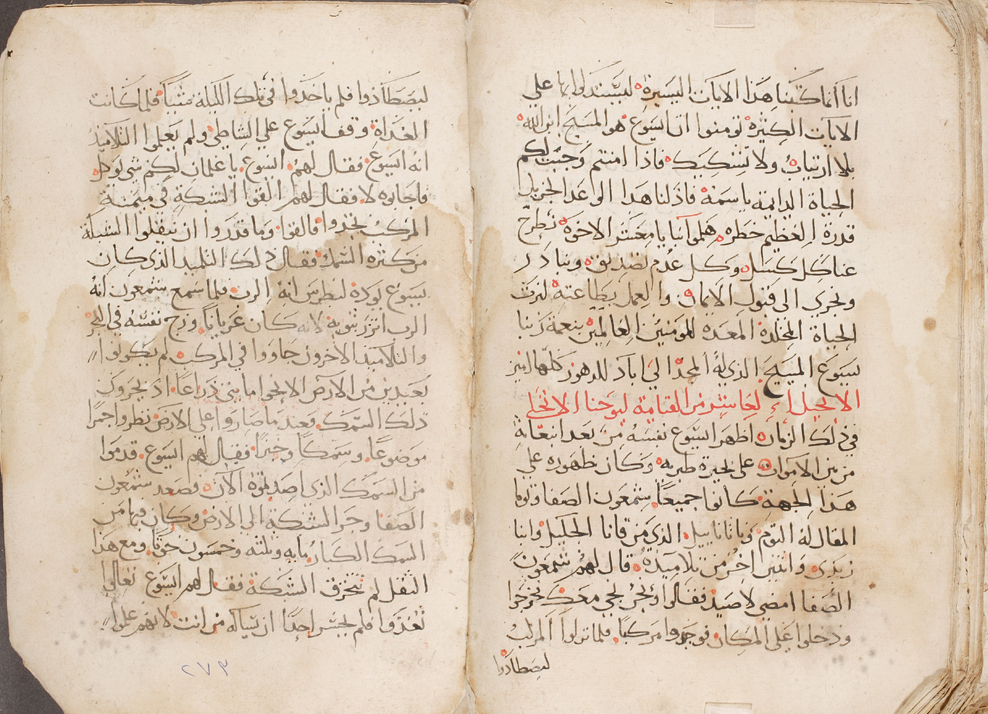 انا انما كتبنا هذا الايات اليسيرة لتستدلوا بها على
الايات الكثيره لتومنوا ان ايسوع هو المسيح ابن الله
بلا ارتياب ولا تشكيك فاذا امنتم وجبت لكم
الحياة الدايمة باسمه فاذ لنا هذا الوعد الجزيل
قدرة العظيم خطره هلموا بنا يا معشر الاخوة نطرح
عنا كل كسل وكل عدم تصديق ونبادر
ونجري الى قبول الايمان والعمل بطاعته لنرث
الحياة المخلدة المعده للمومنين العالمين بنعمة ربنا
يسوع المسيح الذي له المجد الى اباد الدهور كلها امين
الانجيل من القيامة ليوحنا الانجيلي
في ذلك الزمان اظهر ايسوع نفسه من بعد انبعاثه
من بين الاموات على بحيرة طبريه وكان ظهوره على
هذا الجهة كانوا جميعا شمعون الصفا وتوما
المقال له التوم وناثاناييل الذي من قانا الجليل وابنا
زبدى واثنين اخر من تلاميذه قال لهم شمعون
الصفا امضي لاصيد فقالوا ونحن نجي معك فخرجوا
ودخلوا على المكان فوجدوا مركبا فلما نزلوا المركب
ليصطادوا
ليصطادوا فلم ياخدوا في تلك الليلة شيا فلما كانت
الغداة وقف ايسوع على الشاطي ولم يعلموا التلاميذ
انه ايسوع فقال لهم ايسوع يا غلمان لكم شي يوكل
فاجابوه لا فقال لهم القوا الشبكة في ميمنة
المركب تجدوا فالقوا وما قدروا ان ينقلوا الشبكة
من كثرة السمك فقال ذلك التلميذ الذي كان
يسوع يوده لبطرس انه الرب فلما سمع شمعون انه
الرب اتزر بثوبه لانه كان عريانا وزج نفسه في البحر
والتلاميذ الاخرون جاووا في المركب لم يكونوا
بعيدين من الارض الا نحو مايتى ذراعا اذ يجرون
ذلك السمك وعند ما صاروا على الارض نظروا جمرا
موضوعا وسمكا وخبزا فقال لهم ايسوع قدموا
من السمك الذي اصدتموه الان فصعد شمعون
الصفا وجر الشبكة الى الارض وكان فيها من
السمك الكبار مايه وثلثه وخمسون حوتا ومع هذا
الثقل لم تنخرق الشبكة فقال لهم ايسوع تعالوا
تغدوا فلم يجسر احدا ان يساله من انت لانهم علموا
٢٧٣